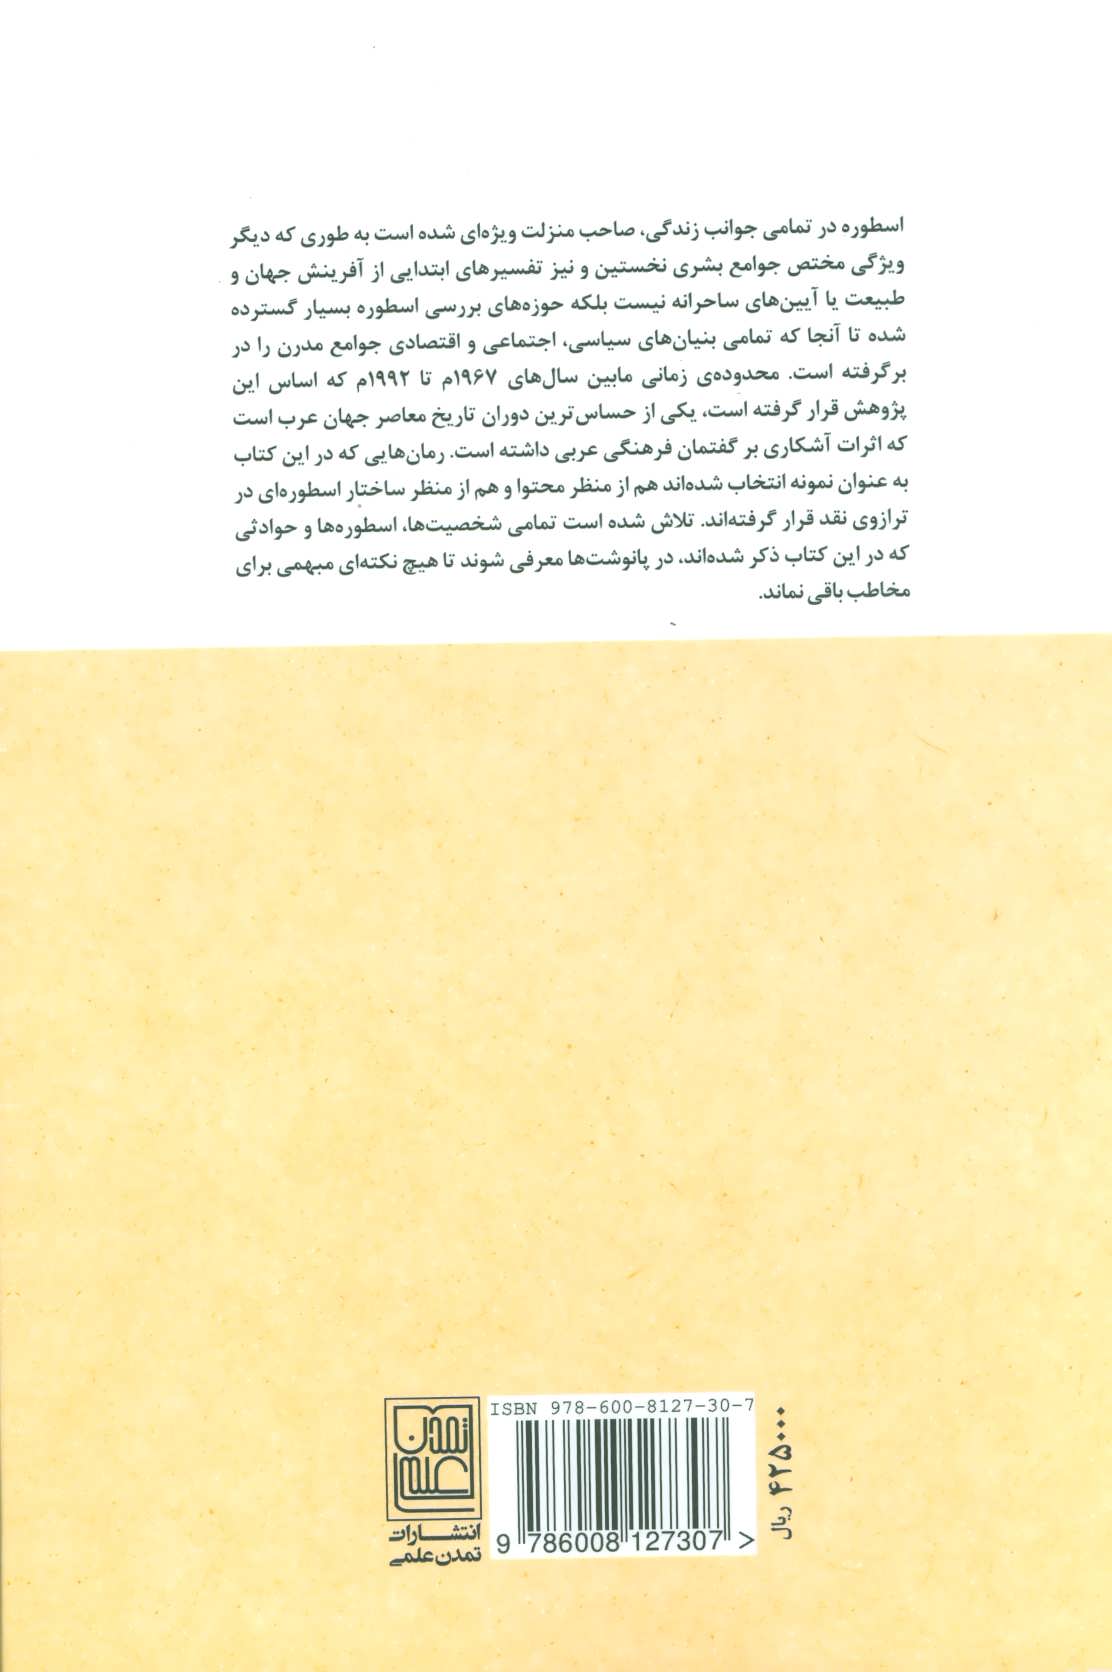 اسطوره در تمامی جوانب زندگی، صاحب منزلت ویژه‌ای شده است به طوری که دیگر
ویژگی مختص جوامع بشری نخستین و نیز تفسیرهای ابتدایی از آفرینش جهان و
طبیعت یا آیین‌های ساحرانه نیست بلکه حوزه‌های بررسی اسطوره بسیار گسترده
شده تا آنجا که تمامی بنیان‌های سیاسی، اجتماعی و اقتصادی جوامع مدرن را در
برگرفته است. محدوده‌ی زمانی مابین سال‌های ۱۹۶۷م تا ۱۹۹۲م که اساس این
پژوهش قرار گرفته است، یکی از حساس‌ترین دوران تاریخ معاصر جهان عرب است
که اثرات آشکاری بر گفتمان فرهنگی عربی داشته است. رمان‌هایی که در این کتاب
به عنوان نمونه انتخاب شده‌اند هم از منظر محتوا و هم از منظر ساختار اسطوره‌ای در
ترازوی نقد قرار گرفته‌اند. تلاش شده است تمامی شخصیت‌ها، اسطوره‌ها و حوادثی
که در این کتاب ذکر شده‌اند، در پانوشت‌ها معرفی شوند تا هیچ نکته‌ای مبهمی برای
مخاطب باقی نماند.
ISBN 978-600-8127-30-7
9 786008 127307 >
۴۲۵۰۰۰ ریال
تمدن
علمی
انتشارات
تمدن علمی